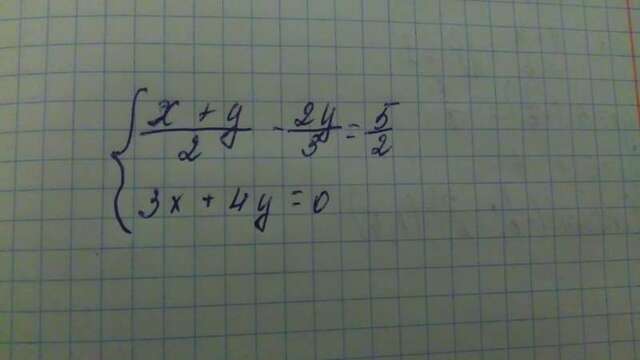 { (x + y)/2 - 2y/3 = 5/2
3x + 4y = 0